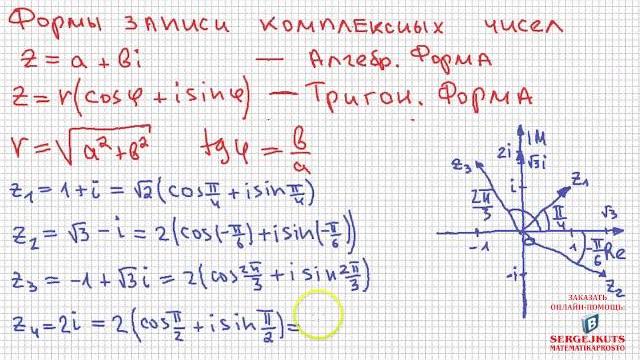 Формы записи комплексных чисел
z = a + вi — Алгебр. Форма
z = r(cosφ + isinφ) — Тригон. Форма
r = √(a² + в²) tgφ = в/a
z₁ = 1 + i = √2(cos π/4 + isin π/4)
z₂ = √3 - i = 2(cos(-π/6) + isin(-π/6))
z₃ = -1 + √3i = 2(cos 2π/3 + i sin 2π/3)
z₄ = 2i = 2(cos π/2 + isin π/2) =
IM
2i √3i
z₃ i z₁
2π/3 π/4 √3
-1 0 1 -π/6 Re
-i z₂
ЗАКАЗАТЬ
ОНЛАЙН-ПОМОЩЬ:
B
SERGEJKUTS
MATEMATIKAPROSTO